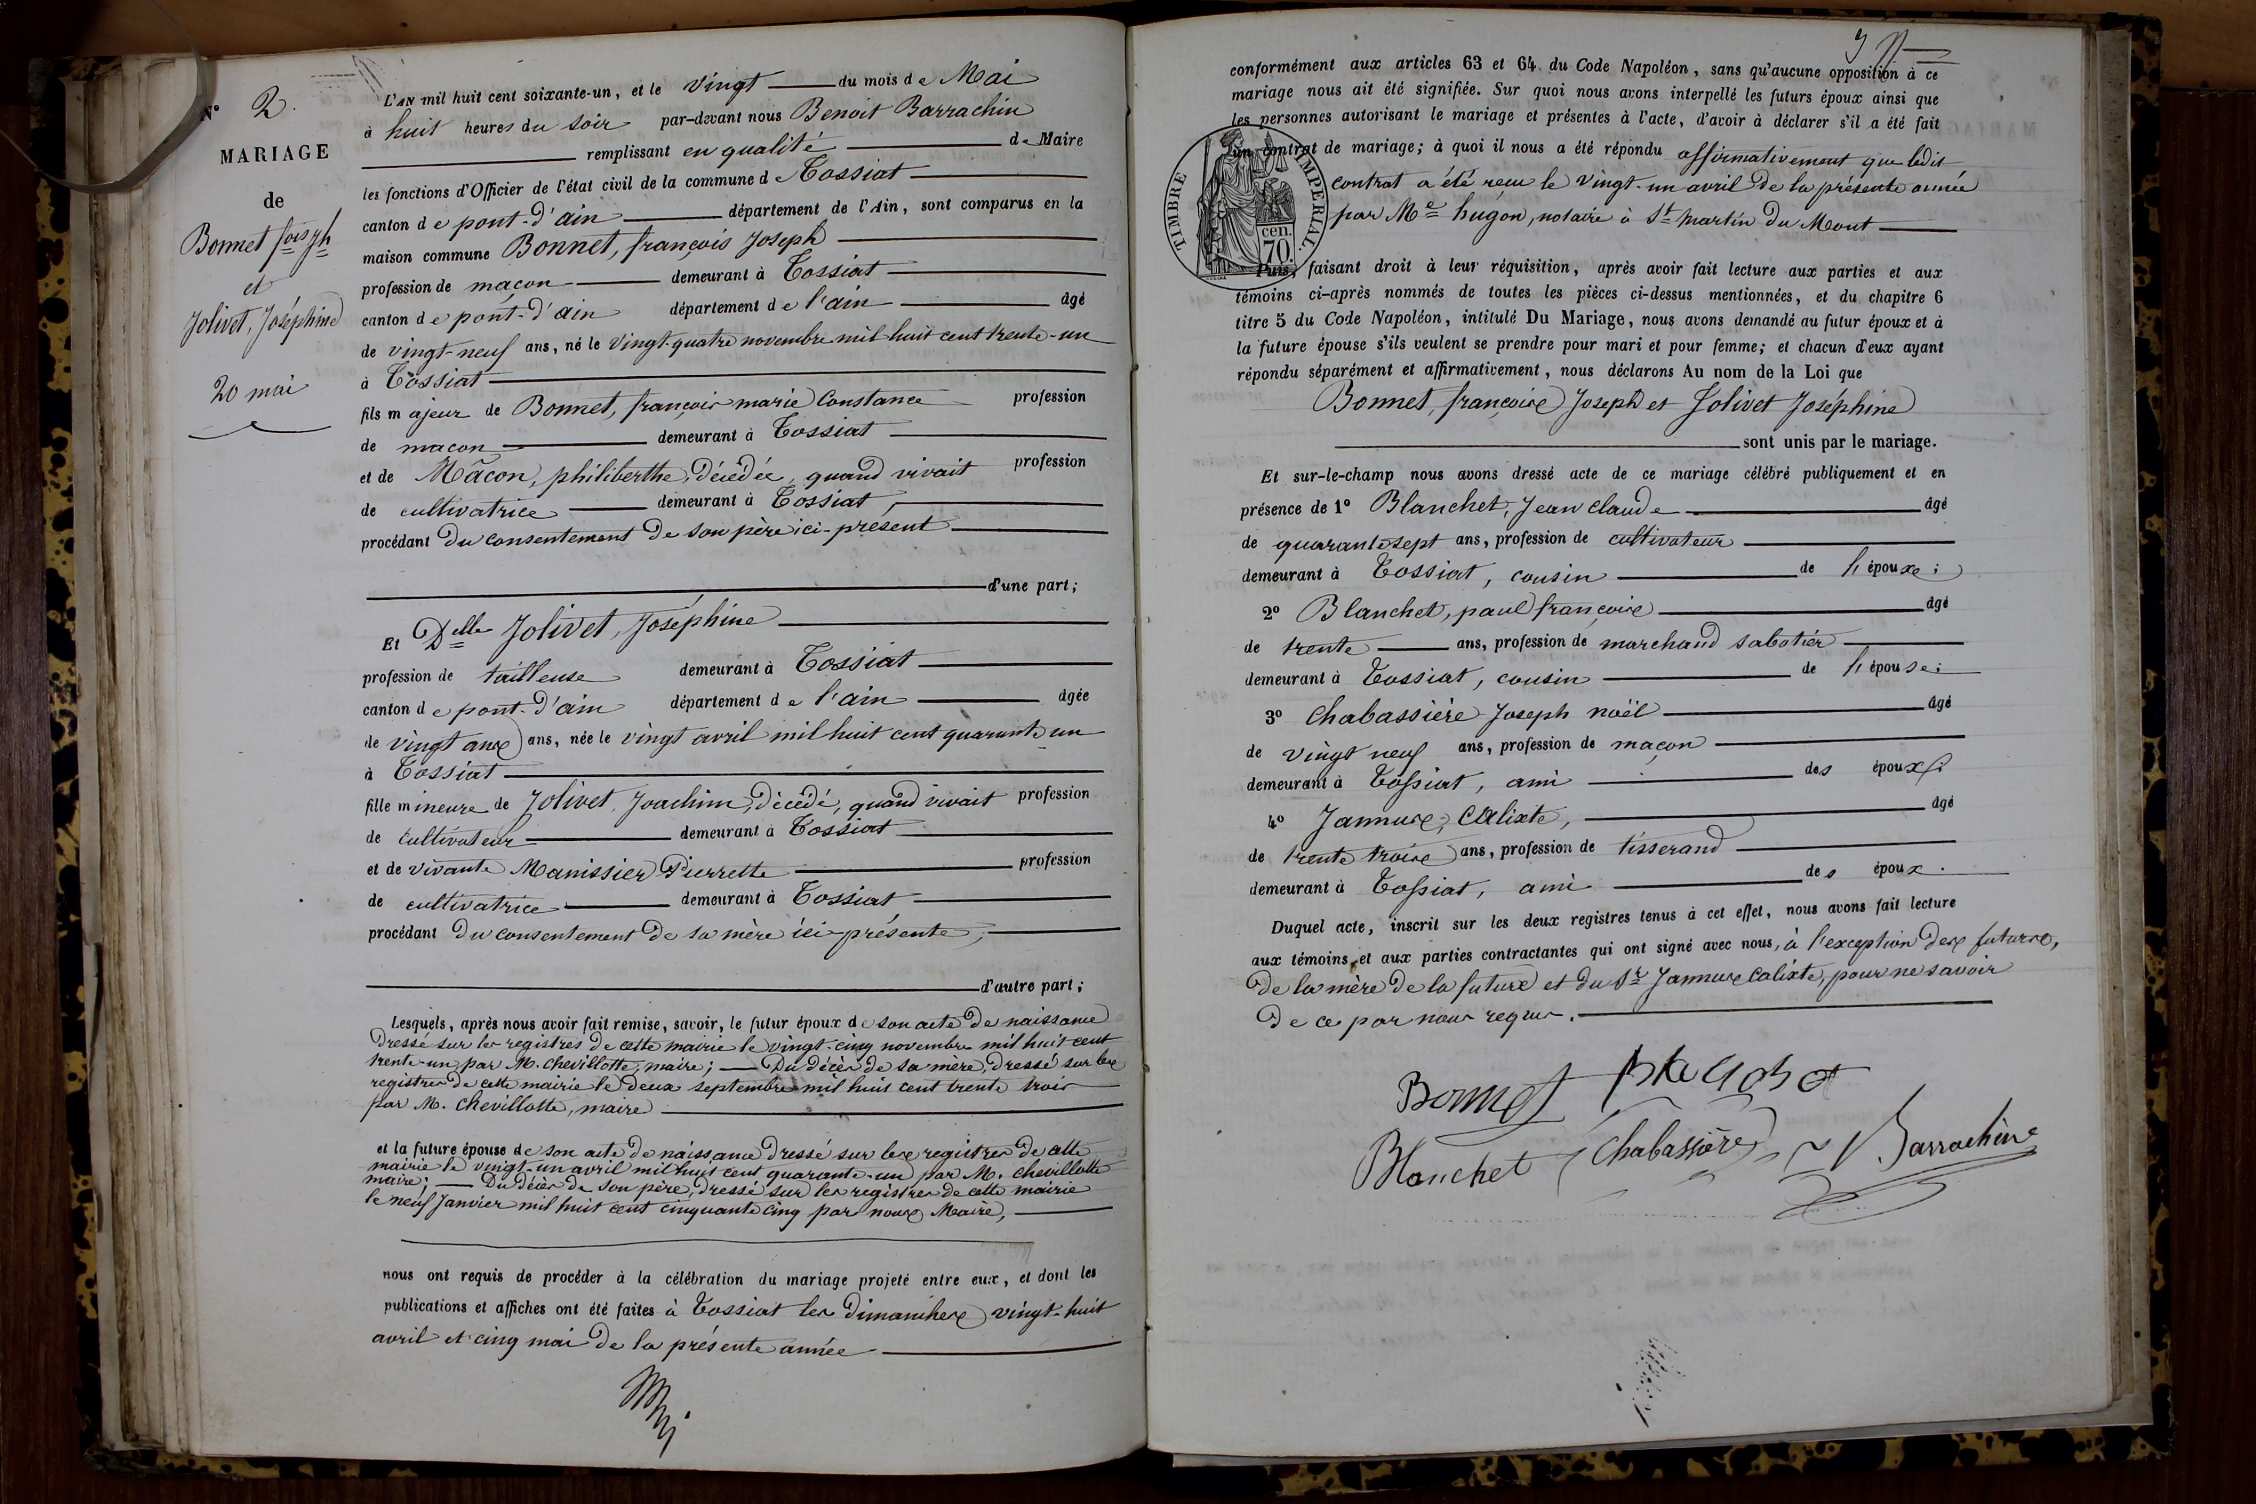 N° 2.
MARIAGE
de
Bonnet fois jh
et
Jolivet, Joséphine
20 mai
L'AN mil huit cent soixante-un, et le vingt du mois de Mai
à huit heures du soir par-devant nous Benoit Barrachin
remplissant en qualité de Maire
les fonctions d'Officier de l'état civil de la commune de Tossiat
canton de pont-d'ain département de l'Ain, sont comparus en la
maison commune Bonnet, françois Joseph
profession de maçon demeurant à Tossiat
canton de pont-d'ain département de l'ain âgé
de vingt-neuf ans, né le vingt-quatre novembre mil huit cent trente-un
à Tossiat
fils majeur de Bonnet, françois marie Constance profession
de maçon demeurant à Tossiat
et de Mâcon, philiberthe, décédée, quand vivait profession
de cultivatrice demeurant à Tossiat,
procédant du consentement de son père ici-présent
d'une part;
Et Delle Jolivet, Joséphine
profession de tailleuse demeurant à Tossiat
canton de pont-d'ain département de l'ain âgée
de vingt ans ans, née le vingt avril mil huit cent quarante un
à Tossiat
fille mineure de Jolivet, Joachim, décédé, quand vivait profession
de cultivateur demeurant à Tossiat
et de vivante Manissier Pierrette profession
de cultivatrice demeurant à Tossiat
procédant du consentement de sa mère ici présente,
d'autre part;
Lesquels, après nous avoir fait remise, savoir, le futur époux de son acte de naissance
dressé sur les registres de cette mairie le vingt-cinq novembre mil huit cent
trente-un par M. Chevillotte, maire; Du décès de sa mère, dressé sur les
registres de cette mairie le deux septembre mil huit cent trente trois
par M. Chevillotte, maire
et la future épouse de son acte de naissance dressé sur les registres de cette
mairie le vingt-un avril mil huit cent quarante-un par M. Chevillotte
maire; Du décès de son père, dressé sur les registres de cette mairie
le neuf Janvier mil huit cent cinquante cinq par nous Maire,
nous ont requis de procéder à la célébration du mariage projeté entre eux, et dont les
publications et affiches ont été faites à Tossiat les dimanches vingt-huit
avril et cinq mai de la présente année
conformément aux articles 63 et 64 du Code Napoléon, sans qu'aucune opposition à ce
mariage nous ait été signifiée. Sur quoi nous avons interpellé les futurs époux ainsi que
les personnes autorisant le mariage et présentes à l'acte, d'avoir à déclarer s'il a été fait
un contrat de mariage; à quoi il nous a été répondu affirmativement que ledit
contrat a été reçu le vingt-un avril de la présente année
par Me hugon, notaire à St martin du Mont
TIMBRE IMPERIAL.
cen.
70.
Puis, faisant droit à leur réquisition, après avoir fait lecture aux parties et aux
témoins ci-après nommés de toutes les pièces ci-dessus mentionnées, et du chapitre 6
titre 5 du Code Napoléon, intitulé Du Mariage, nous avons demandé au futur époux et à
la future épouse s'ils veulent se prendre pour mari et pour femme; et chacun d'eux ayant
répondu séparément et affirmativement, nous déclarons Au nom de la Loi que
Bonnet, françois Joseph et Jolivet Joséphine
sont unis par le mariage.
Et sur-le-champ nous avons dressé acte de ce mariage célébré publiquement et en
présence de 1° Blanchet, Jean Claude âgé
de quarante sept ans, profession de cultivateur
demeurant à Tossiat, cousin de l'épouxe;
2° Blanchet, paul françois âgé
de trente ans, profession de marchand sabotier
demeurant à Tossiat, cousin de l'épouse;
3° Chabassière Joseph noël âgé
de vingt neuf ans, profession de maçon
demeurant à Tossiat, ami des époux;
4° Jannus, Calixte, âgé
de trente trois ans, profession de tisserand
demeurant à Tossiat, ami des époux.
Duquel acte, inscrit sur les deux registres tenus à cet effet, nous avons fait lecture
aux témoins et aux parties contractantes qui ont signé avec nous, à l'exception des futurs,
de la mère de la future et du Sr Jannus Calixte, pour ne savoir
de ce par nous requis.
Bonnet Blanchet
Blanchet Chabassière Barrachin